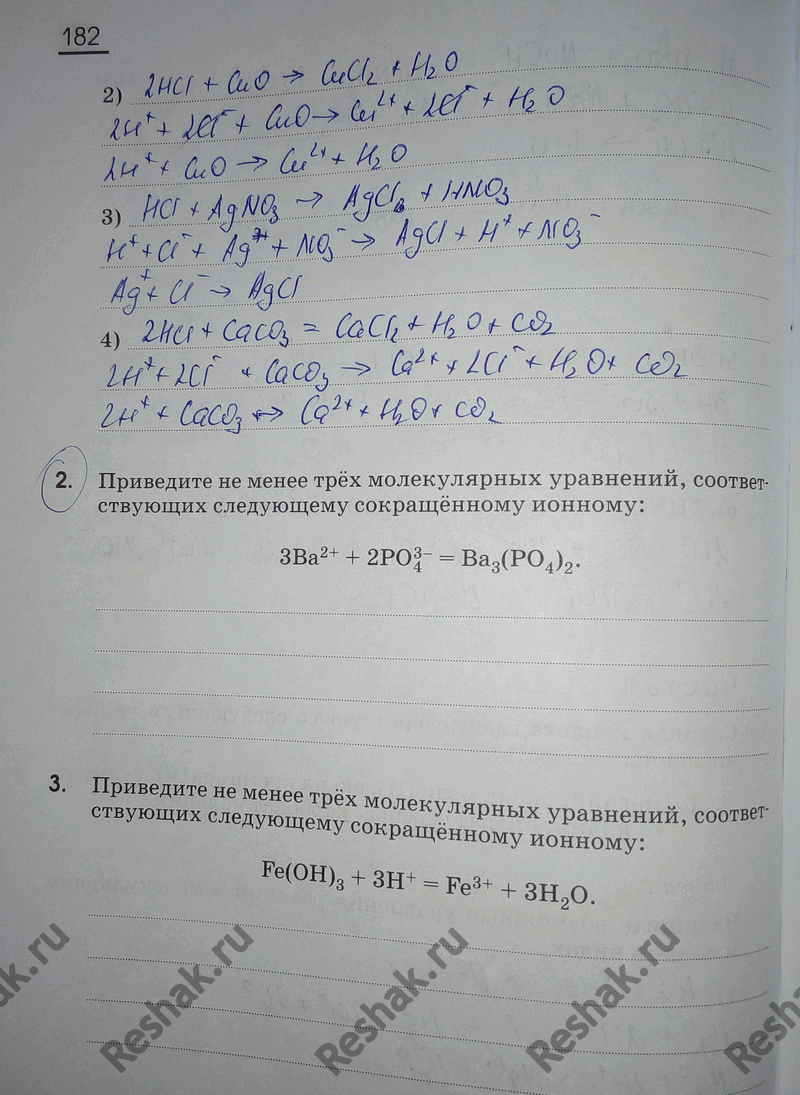 182
2) 2HCl + CuO → CuCl₂ + H₂O
2H⁺ + 2Cl⁻ + CuO → Cu²⁺ + 2Cl⁻ + H₂O
2H⁺ + CuO → Cu²⁺ + H₂O
3) HCl + AgNO₃ → AgCl + HNO₃
H⁺ + Cl⁻ + Ag⁺ + NO₃⁻ → AgCl + H⁺ + NO₃⁻
Ag⁺ + Cl⁻ → AgCl
4) 2HCl + CaCO₃ = CaCl₂ + H₂O + CO₂
2H⁺ + 2Cl⁻ + CaCO₃ → Ca²⁺ + 2Cl⁻ + H₂O + CO₂
2H⁺ + CaCO₃ → Ca²⁺ + H₂O + CO₂
2. Приведите не менее трёх молекулярных уравнений, соответ-
ствующих следующему сокращённому ионному:
3Ba²⁺ + 2PO₄³⁻ = Ba₃(PO₄)₂.
3. Приведите не менее трёх молекулярных уравнений, соответ-
ствующих следующему сокращённому ионному:
Fe(OH)₃ + 3H⁺ = Fe³⁺ + 3H₂O.
Reshak.ru Reshak.ru Reshak.ru Reshak.ru